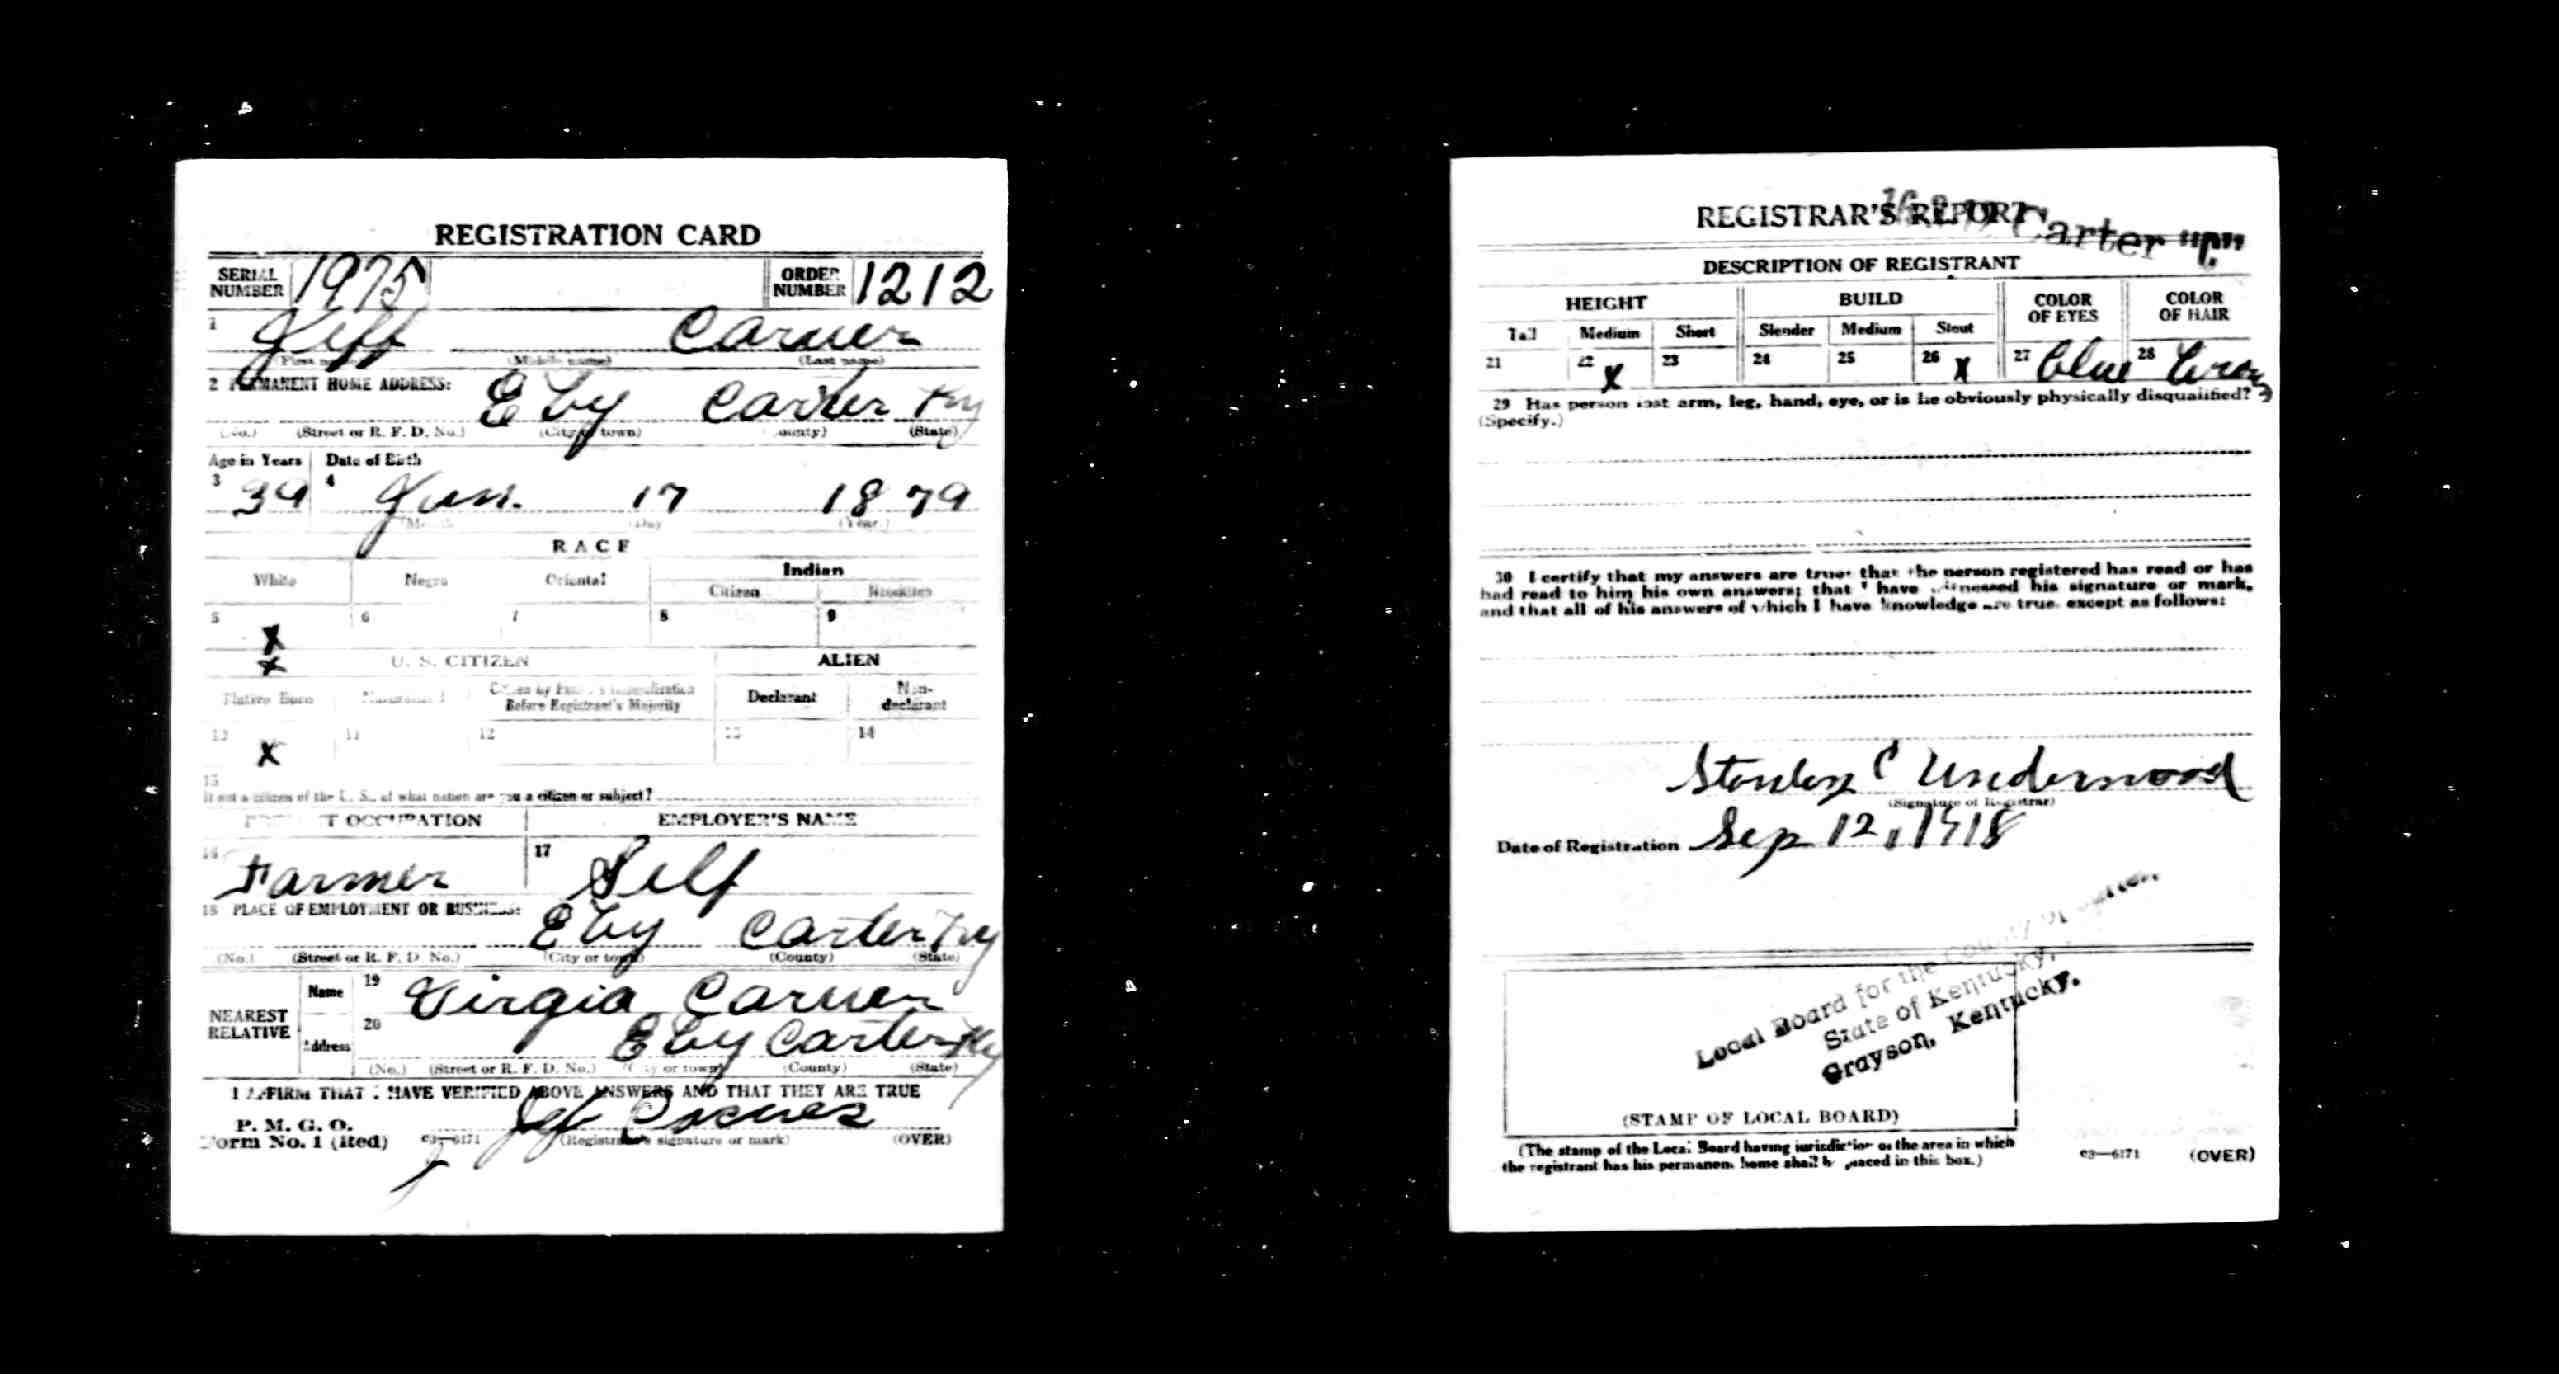 REGISTRATION CARD
SERIAL NUMBER 1975 ORDER NUMBER 1212
1 Jeff Carver
(First name) (Middle name) (Last name)
2 PERMANENT HOME ADDRESS: Eby Carter Ky
(No.) (Street or R. F. D. No.) (City or town) (County) (State)
Age in Years Date of Birth
3 39 4 Jan. 17 1879
(Month) (Day) (Year)
RACE
White Negro Oriental Indian
Citizen Noncitizen
5 X 6 7 8 9
X U. S. CITIZEN ALIEN
Native Born Naturalized Citizen by Father's Naturalization Before Registrant's Majority Declarant Non-declarant
10 X 11 12 13 14
15
If not a citizen of the U. S., of what nation are you a citizen or subject?
PRESENT OCCUPATION EMPLOYER'S NAME
16 Farmer 17 Self
18 PLACE OF EMPLOYMENT OR BUSINESS:
Eby Carter Ky
(No.) (Street or R. F. D. No.) (City or town) (County) (State)
NEAREST RELATIVE Name 19 Virgia Carver
Address 20 Eby Carter Ky
(No.) (Street or R. F. D. No.) (City or town) (County) (State)
I AFFIRM THAT I HAVE VERIFIED ABOVE ANSWERS AND THAT THEY ARE TRUE
P. M. G. O.
Form No. 1 (Red) c3—6171 Jeff Carver (Registrant's signature or mark) (OVER)
REGISTRAR'S REPORT
Carter "C"
DESCRIPTION OF REGISTRANT
HEIGHT BUILD COLOR OF EYES COLOR OF HAIR
Tall Medium Short Slender Medium Stout
21 22 X 23 24 25 26 X 27 blue 28 brown
29 Has person lost arm, leg, hand, eye, or is he obviously physically disqualified?
(Specify.)
30 I certify that my answers are true; that the person registered has read or has
had read to him his own answers; that I have witnessed his signature or mark,
and that all of his answers of which I have knowledge are true, except as follows:
Stanley C Underwood
(Signature of Registrar)
Date of Registration Sep 12, 1918
Local Board for the County of Carter,
State of Kentucky,
Grayson, Kentucky.
(STAMP OF LOCAL BOARD)
(The stamp of the Local Board having jurisdiction of the area in which
the registrant has his permanent home shall be placed in this box.)
c3—6171 (OVER)